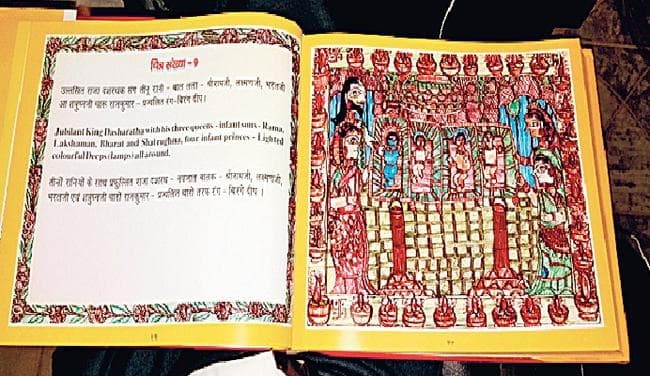 चित्र संख्या - 9
उल्लसित राजा दशरथक संग तीनू रानी - बाल लला - श्रीरामजी, लक्ष्मणजी, भरतजी
आ शत्रुघ्नजी चारू राजकुमार - प्रज्वलित रंग-बिरंग दीप।
Jubilant King Dasharatha with his three queens - infant sons - Rama,
Lakshaman, Bharat and Shatrughna, four infant princes - Lighted
colourful Deeps (lamps) all around.
तीनों रानियों के साथ प्रफुल्लित राजा दशरथ - नवजात बालक - श्रीरामजी, लक्ष्मणजी,
भरतजी एवं शत्रुघ्नजी चारों राजकुमार - प्रज्वलित चारो तरफ रंग - बिरंगे दीप ।